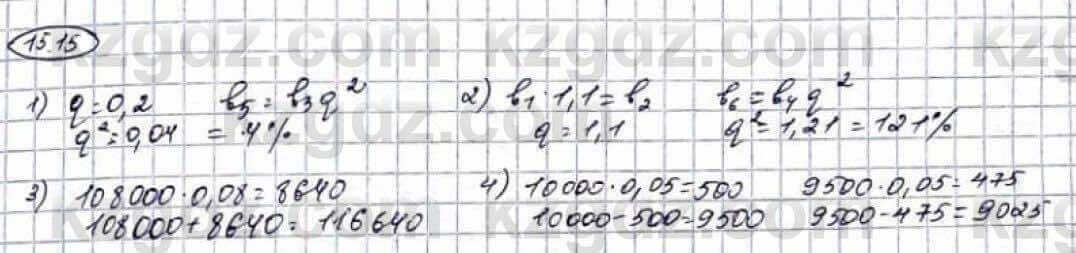 15.15
1) q=0,2 b₅=b₃q²
q²=0,04 = 4%
2) b₁·1,1=b₂ b₆=b₄q²
q=1,1 q²=1,21=121%
3) 108000·0,08=8640
108000+8640=116640
4) 10000·0,05=500 9500·0,05=475
10000-500=9500 9500-475=9025
kzgdz.com